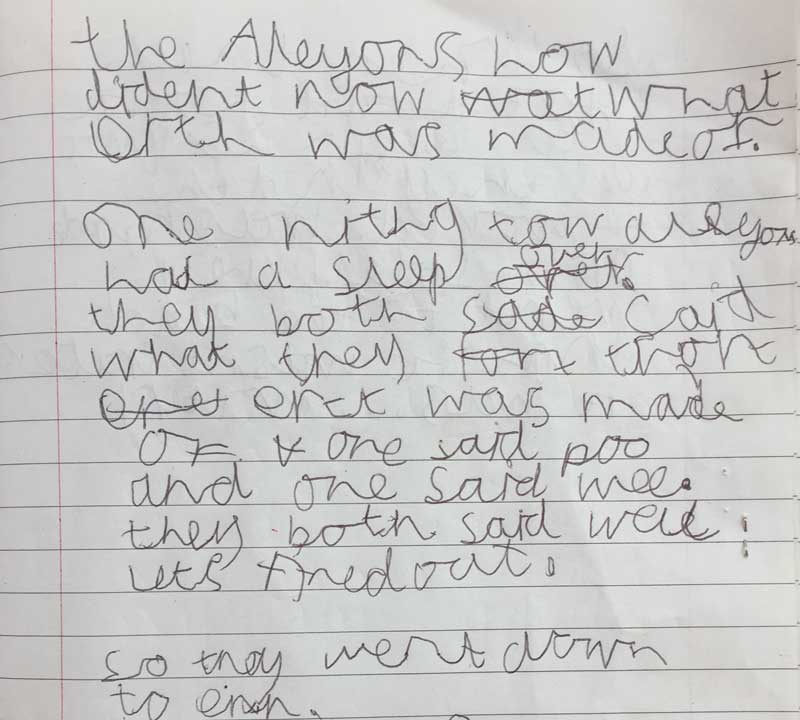 the Aleyons how
dident now wat what
Orth was made of.
One nithg tow aleyons
had a sleep over over.
they both sade Caid
what they fort thort
eret erct was made
OF one said poo
and one said wee.
they both said well:
lets fined out.
so they went down
to